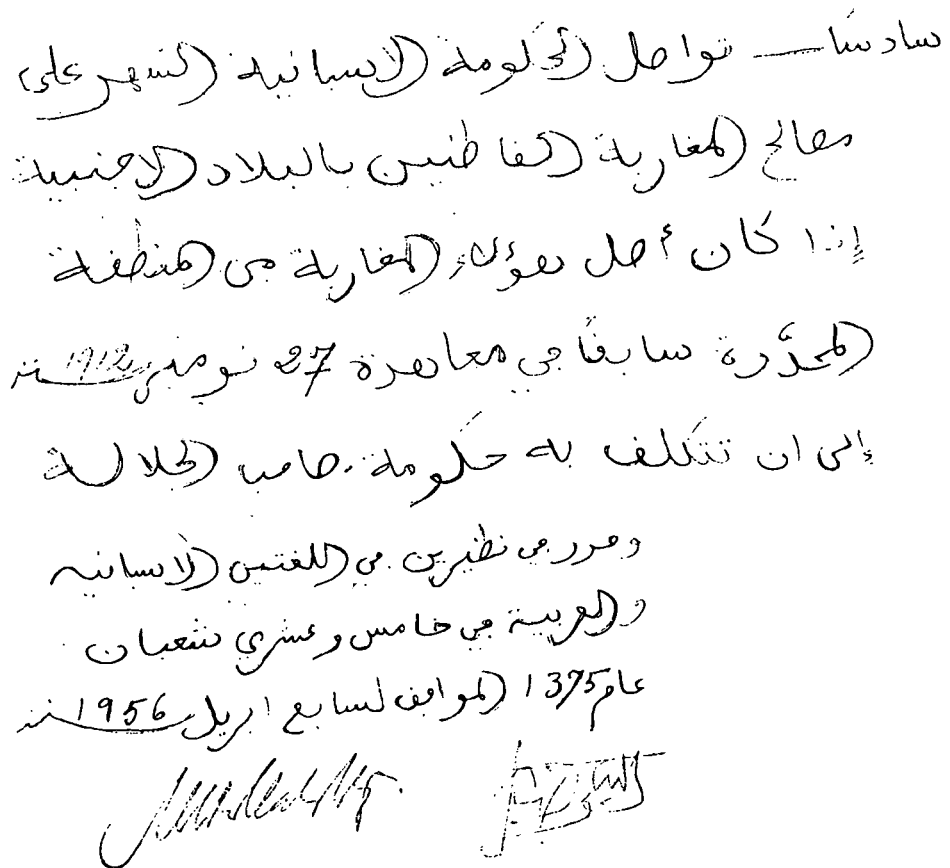 سادسًا — تواصل الحكومة الاسبانية السهر على
مصالح المغاربة القاطنين بالبلاد الاجنبية
إذا كان أصل هؤلاء المغاربة من المنطقة
المحدَّدة سابقًا في معاهدة 27 نومبر سنة 1912
إلى ان تتكلف به حكومة صاحب الجلالة
وحرر في نظيرين في اللغتين الأسبانية
والعربية في خامس وعشري شعبان
عام 1375 الموافق لسابع ابريل سنة 1956